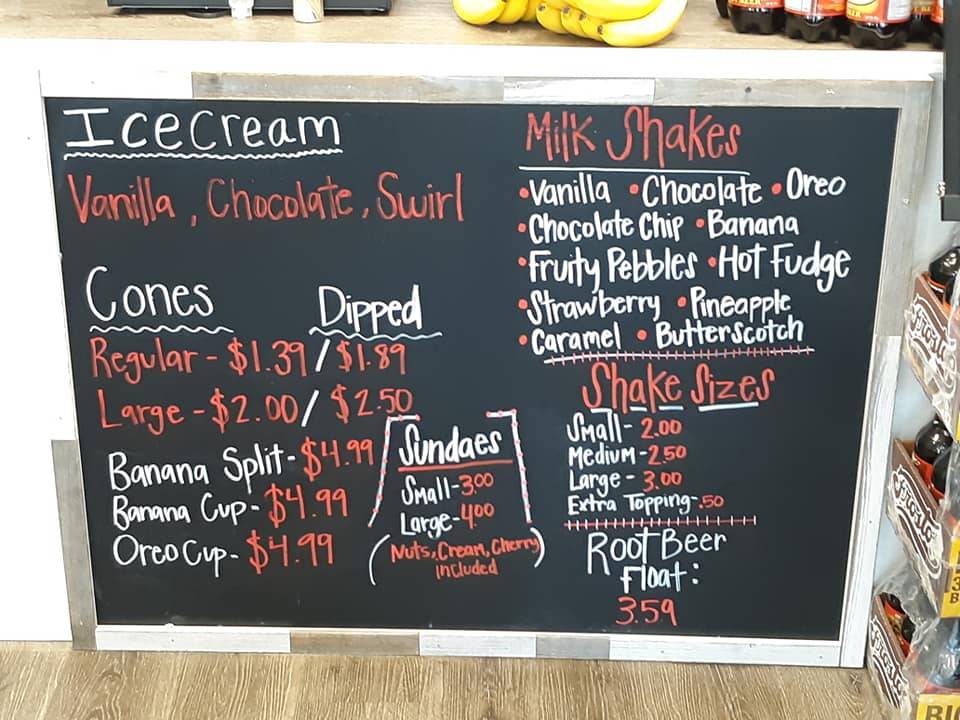 IceCream
Vanilla, Chocolate, Swirl
Cones Dipped
Regular - $1.39 / $1.89
Large - $2.00 / $2.50
Banana Split - $4.99
Banana Cup - $4.99
Oreo Cup - $4.99
Sundaes
Small - 3.00
Large - 4.00
(Nuts, Cream, Cherry
included)
Milk Shakes
•Vanilla •Chocolate •Oreo
•Chocolate Chip •Banana
•Fruity Pebbles •Hot Fudge
•Strawberry •Pineapple
•Caramel •Butterscotch
Shake Sizes
Small - 2.00
Medium - 2.50
Large - 3.00
Extra Topping - .50
Root Beer
Float:
3.59